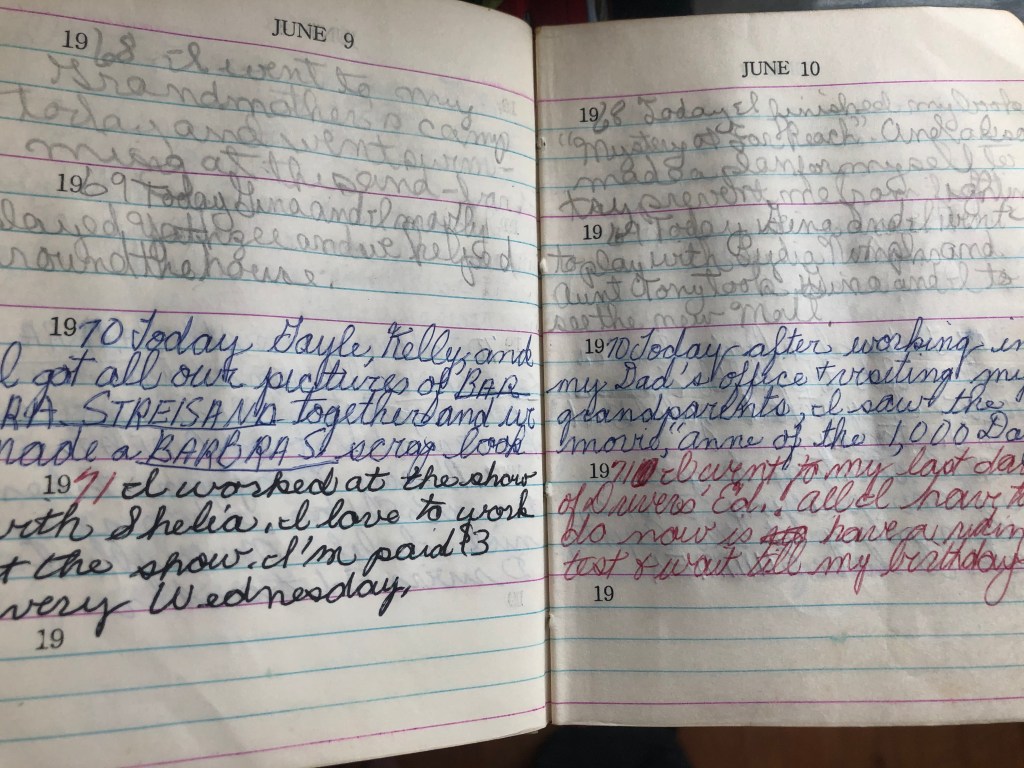 JUNE 9
1968 I went to my
Grandmother's camp
today and went swim-
ming at the sand-
1969 Today Gina and I mostly
layed Yahtzee and we helped
round the house.
1970 Today Gayle, Kelly, and
I got all our pictures of BAR
RA STREISAND together and we
made a BARBRA S. scrap book
1971 I worked at the show
ith Shelia. I love to work
t the show. I'm paid $3
very Wednesday,
19
JUNE 10
1968 Today I finished my book
"Mystery at Far Reach" And also
made a
try prevent me from
1969 Today Gina and I went
to play with and
Aunt Tony took Gina and I to
see the new Mall
1970 Today after working in
my Dad's office & visiting my
grandparents, I saw the
movie, "anne of the 1,000 Da
1971 I went to my last day
of Drivers' Ed.! all I have to
do now is have a
test & wait till my birthday
19